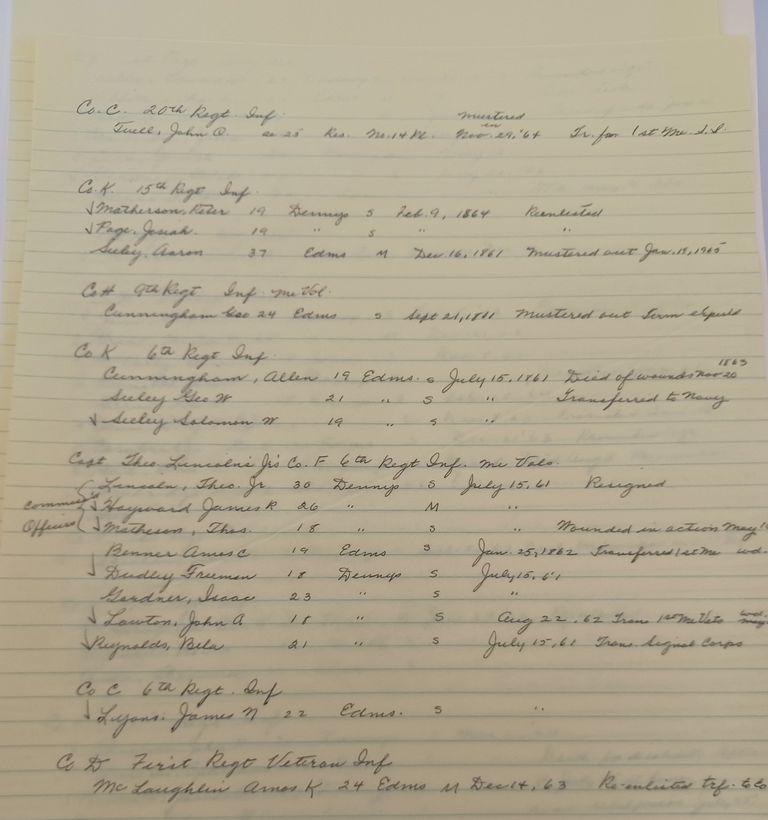 Co. C. 20th Regt Inf.
mustered in
Tuell, John O. ae 25 Res. No. 14 Pl. Nov. 29, '64 Tr. from 1st Me. S.S.
Co. K. 15th Regt Inf.
√ Matherson, Peter 19 Dennys S Feb. 9, 1864 Reenlisted
√ Page, Josiah. 19 " S " "
Seeley, Aaron 37 Edms M Dec. 16, 1861 Mustered out Jan. 18, 1965
Co H 9th Regt Inf. Me Vol.
Cunningham Geo 24 Edms S Sept 21, 1861 Mustered out Term expired
Co K 6th Regt Inf.
Cunningham, Allen 19 Edms. S July 15, 1861 Died of wounds Nov 20 1863
Seeley Geo W 21 " S " Transferred to Navy
√ Seeley Solomon W 19 " S "
Capt Theo. Lincoln's Jr's Co. F 6th Regt Inf. Me Vols.
Lincoln, Theo. Jr. 30 Dennys S July 15, 61 Resigned
Officers √ Hayward James R 26 " M "
√ Matheson, Thos. 18 " S " Wounded in action May
Benner Amos C 19 Edms S Jan. 25, 1862 Transferred 1st Me wd.
√ Dudley Freeman 18 Dennys S July 15, 61
Gardner, Isaac 23 " S "
√ Lawton, John A. 18 " S Aug 22, 62 Trans 1st Me Vets wd. May
√ Reynolds, Bela 21 " S July 15, 61 Trans. Signal Corps
Co C 6th Regt. Inf
√ Lyons. James N 22 Edms. S "
Co D First Regt Veteran Inf
McLaughlin Amos K 24 Edms M Dec 14, 63 Re-enlisted trf. to Co